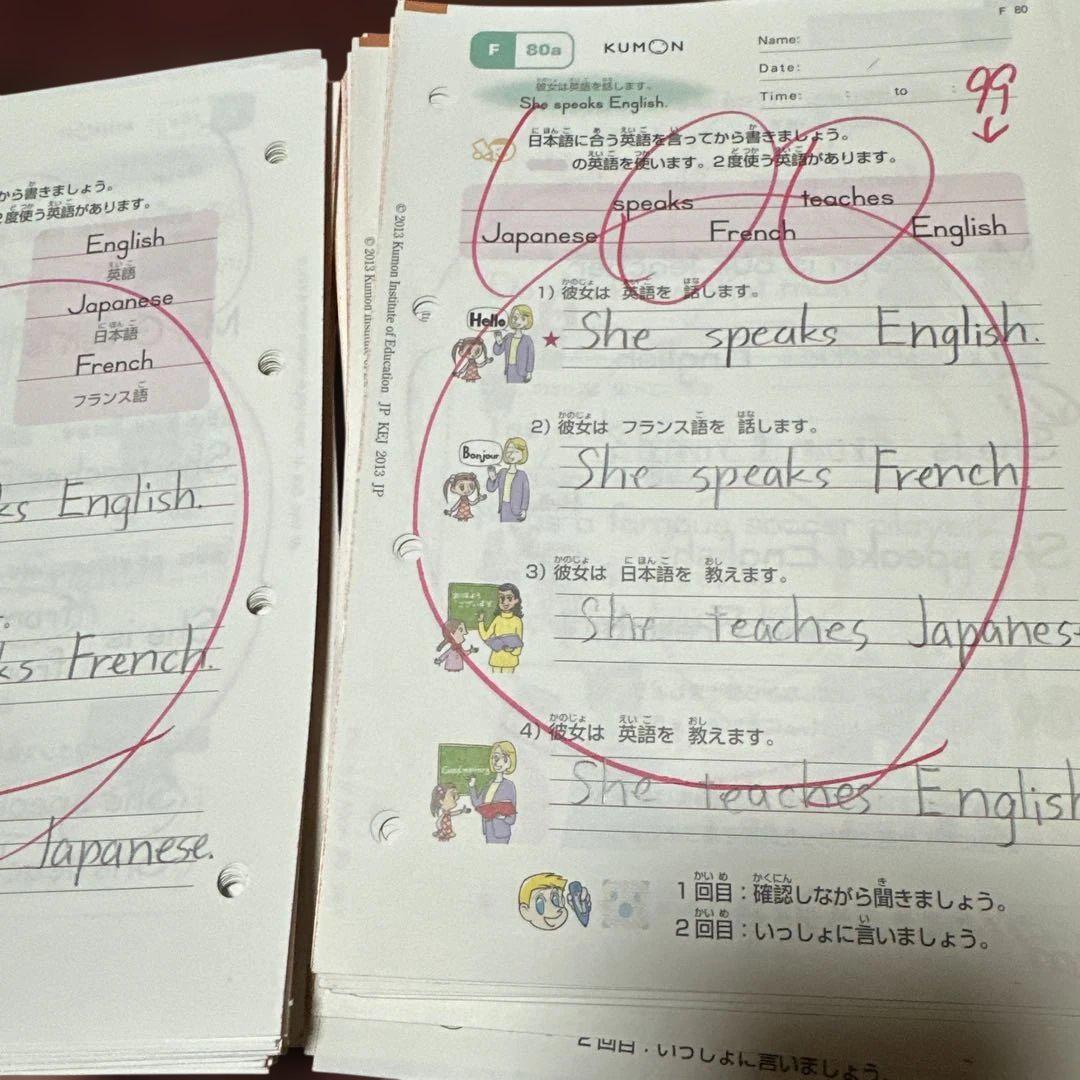 から書きましょう。
2度使う英語があります。
English
英語
Japanese
日本語
French
フランス語
ks English.
ks French.
Japanese.
F 80
F 80a KUMON
Name:
Date: /
Time: : to :
99
彼女は英語を話します。
She speaks English.
日本語に合う英語を言ってから書きましょう。
の英語を使います。2度使う英語があります。
speaks teaches
Japanese French English
1) 彼女は 英語を 話します。
Hello
She speaks English.
2) 彼女は フランス語を 話します。
Bonjour
She speaks French
3) 彼女は 日本語を 教えます。
おはよう
ございます
She teaches Japanes
4) 彼女は 英語を 教えます。
Good morning
She teaches English
1回目:確認しながら聞きましょう。
2回目:いっしょに言いましょう。
© 2013 Kumon Institute of Education JP KEJ 2013 JP
2回目:いっしょに言いましょう。